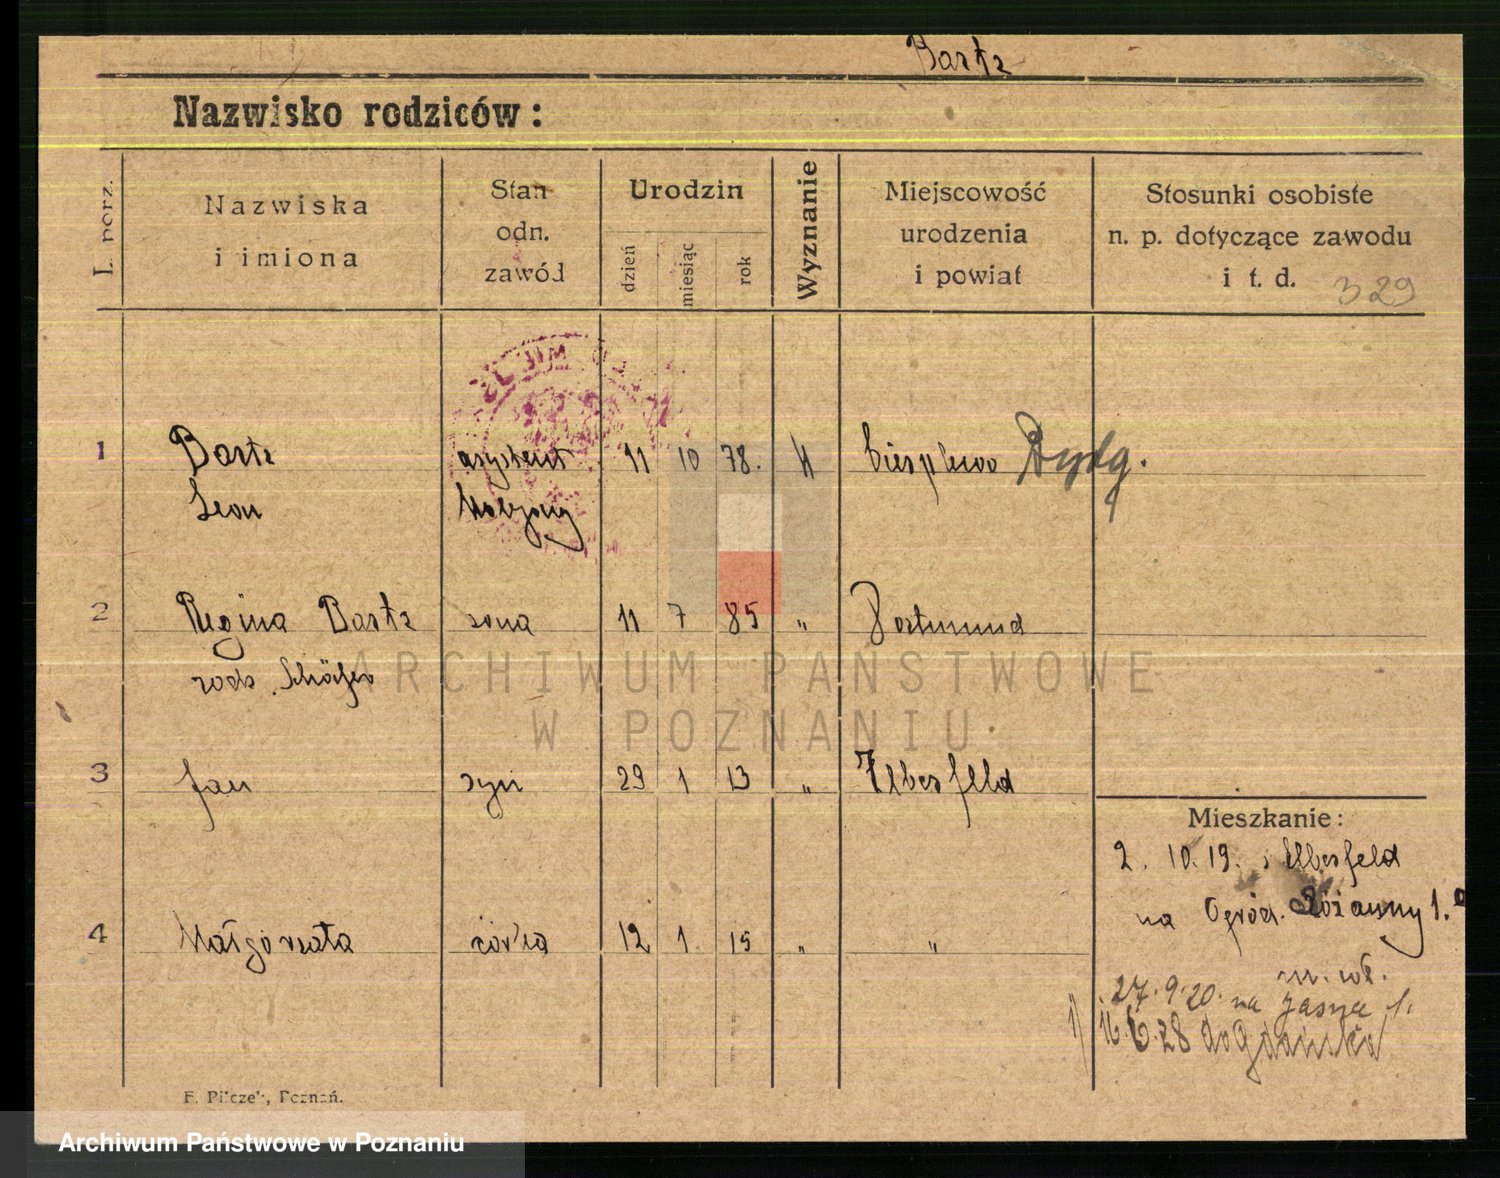 Bartz
Nazwisko rodziców:
L. porz.
Nazwiska
i imiona
Stan
odn.
zawód
Urodzin
dzień
miesiąc
rok
Wyznanie
Miejscowość
urodzenia
i powiat
Stosunki osobiste
n. p. dotyczące zawodu
i t. d.
329
1 Bartz asystent 11 10 78. Bydg.
Leon
2 Regina Bartz żona 11 7 85 „ Dortmund
rodz. Schäfer
ARCHIWUM PAŃSTWOWE
W POZNANIU
3 Jan syn 29 1 13 „ Elberfeld
4 Małgorzata córka 12 1 15 „ „
Mieszkanie:
2. 10. 19. z Elberfeld
na Ogród. 1.
27. 9. 20. na Jasna 1.
16. 6. 28 do Gdańska
F. Pilczek, Poznań.
Archiwum Państwowe w Poznaniu